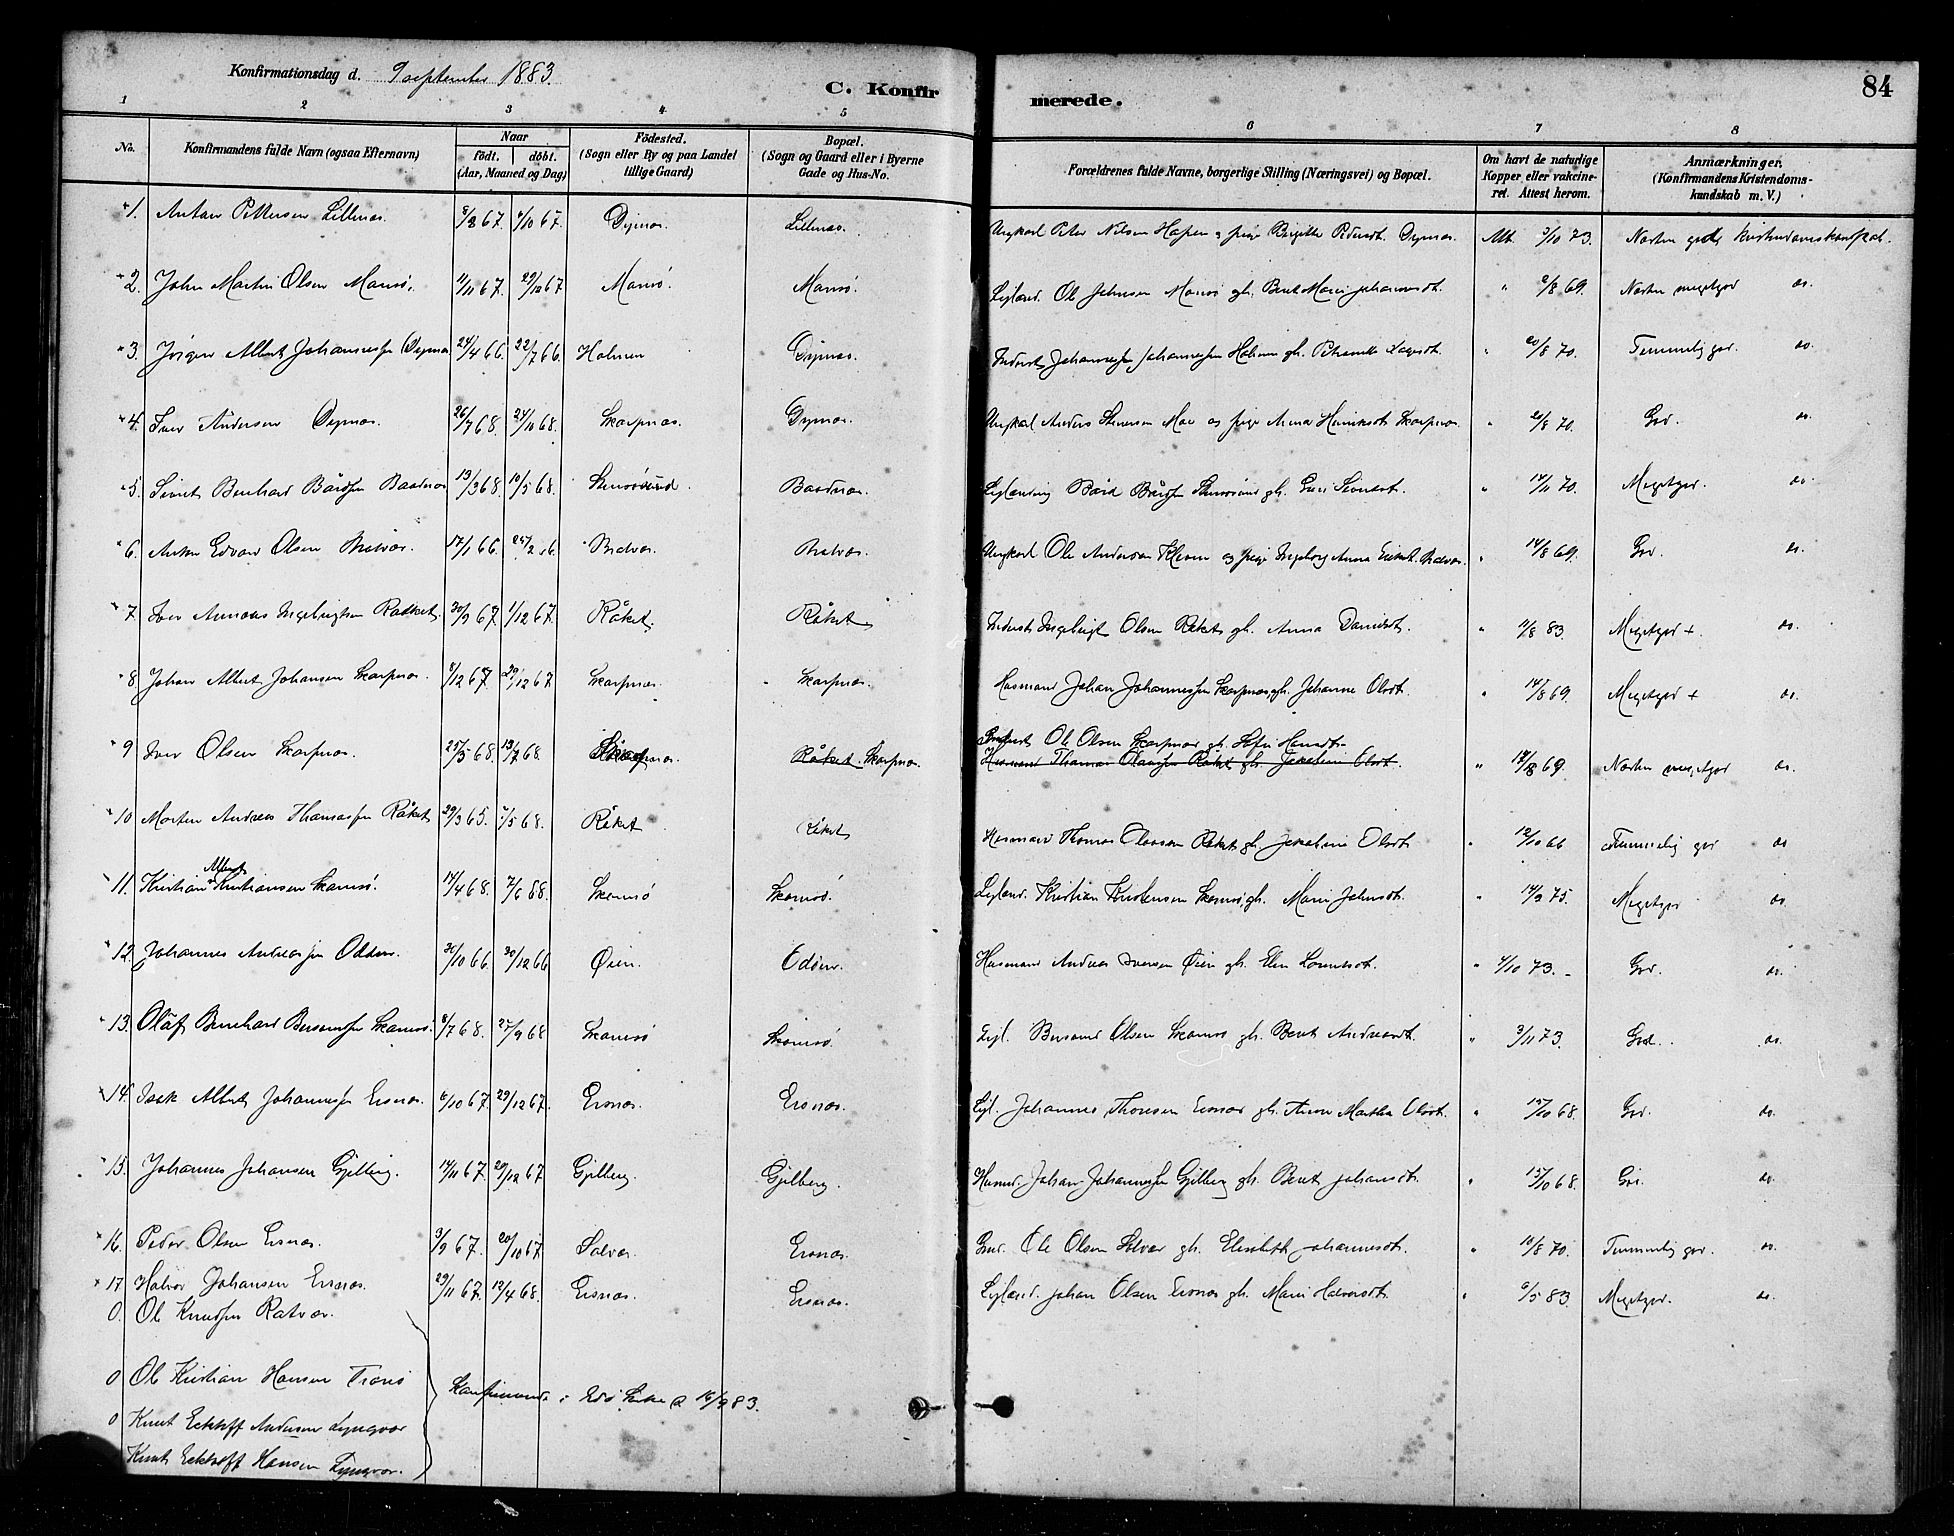 Konfirmationsdag d. 9 september 1883.
C. Konfirmerede.
84
1 2 3 4 5 6 7 8
No.
Konfirmandens fulde Navn (ogsaa Efternavn)
Naar
födt. döbt.
(Aar, Maaned og Dag)
Födested.
(Sogn eller By og paa Landet
tillige Gaard)
Bopæl.
(Sogn og Gaard eller i Byerne
Gade og Hus-No.
Forældrenes fulde Navne, borgerlige Stilling (Næringsvei) og Bopæl.
Om havt de naturlige
Kopper eller vakcine-
ret. Attest herom.
Anmærkninger.
(Konfirmandens Kristendoms-
kundskab m. V.)
1. Antan Pettersen Lillenæs. 67. /10 67. Dyrnæs. Lillenæs. Ungkarl Peter Nilsen og pige Brigitte Pedersdt. Dyrnæs. Att. /10 73. Næsten god Kristendomskundskab.
2. John Martin Olsen Marisø. /11 67. 29/12 67 Marisø. Marisø. Leiland. Ole Johnsen Marisø gh. Berit Marie Johannesdt. " 2/8 69. Næsten megetgod do.
3. Jörgen Albert Johannessen Dyrnæs 24/4 66. 22/7 66. Holmen Dyrnæs. Inderst Johannes Johannessen Holmen gh. Petronelle " 20/8 70. Temmelig god. do.
4. Iver Andersen Dyrnæs. 26/7 68. 24/11 68. Skarpnæs. Dyrnæs. Ungkarl Anders Moe og pige Anna Henriksdt. Skarpnæs. " 20/8 70. God. do.
5. Sivert Benhard Bårdsen Baadnæs 13/3 68. 10/5 68. Baadnæs. Bård Bårdsen gh. Guri Sivertsdt. " 14/11 70. Megetgod. do.
6. Anton Edvard Olsen 17/1 66. 25/2 66. Ungkarl Ole Andersen og pige Ingeborg Anna " 14/8 69. God. do.
7 Iver Andreas Ingebrigtsen Raaket. 30/9 67. 1/12 67. Råket. Råket Inderst Ingebrigt Olsen Råket gh. Anna Danielsdt. " 11/8 83. Megetgod + do.
8 Johan Albert Johansen Skarpnæs. 8/12 67. 29/12 67 Skarpnæs. Skarpnæs. Husmand Johan Johannessen Skarpnæs gh. Johanne Olsdt. " 14/8 69. Megetgod + do.
9 Iver Olsen Skarpnæs. 25/5 68. 19/7 68. Skarpnæs. Råket Skarpnæs. Ole Olsen Skarpnæs gh. Sofie Hansdt.
Husmand Thomas Olaussen Råket gh. Jakobine Olsdt. " 69. Næsten megetgod do.
10 Morten Andreas Thomassen Råket 29/3 65. /5 68. Råket Råket Husmand Thomas Olaussen Råket gh. Jakobine Olsdt " 12/10 66 Temmelig god do
11. Kristian Albert Kristiansen Skarsø. 14/4 68. 7/6 68. Skarsø Skarsø. Leiland. Kristian Kristensen Skarsø gh. Marie Johnsdt. " 14/9 75. Megetgod do.
12. Johannes Andreassen Odden. /10 66. 30/12 66 Øien. Odden. Husmand Andreas Iversen Øien gh. Elen Lorentsdt. " 4/10 73. God. do.
13. Oluf Benhard Skarsø. 8/7 68. 27/9 68 Skarsø Skarsø. Leil. Olsen Skarsø gh. Berit Andreasdt. " 3/11 73. God. do.
14. Isak Albert Johannessen Ersnæs. 6/10 67. 29/12 67. Ersnæs. Ersnæs. Leil. Johannes Thoresen Ersnæs gh. Anne Martha Olsdt. " 15/10 68. God. do.
15. Johannes Johansen Gjelberg. 14/11 67. 29/12 67 Gjelberg. Gjelberg. Husmd. Johan Johannessen Gjelberg gh. Berit Johansdt. " 15/10 68. God. do.
16. Peder Olsen Ersnæs. 3/9 67. 20/10 67. Solvær. Ersnæs. Ole Olsen Solvær gh. Elisabeth Johannesdt. " 10/8 70. Temmelig god. do.
17 Halvor Johansen Ersnæs. 29/11 67. 12/4 68. Ersnæs. Ersnæs. Leiland. Johan Olsen Ersnæs gh. Marie Halvorsdt. " /5 83. Megetgod. do.
0. Ole Knudsen Ratvær.
0 Ole Kristian Hansen Tronø Konfirmerede i Edø Kirke d 16/9 83.
0 Knut Eckhoff Andersen Lyngvær
Knut Eckhoff Hansen Lyngvær.